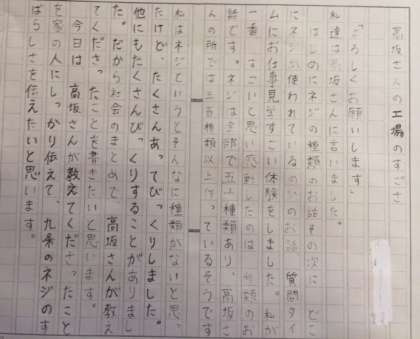 高坂さんの工場のすごさ
「よろしくお願いします」
私達は高坂さんに言いました。
はじめにネジの種類のお話その次に、どこ
にネジが使われているのかのお話、質問タイ
ムにお仕事見学すごい体験をしました。私が
一番、すごいと思い感動したのは、種類のお
話です。ネジは全部で五十種類あり、高坂さ
んの所では三百種類以上作っているそうです
私はネジというとそんなに種類がないと思っ
てたけど、たくさんあってびっくりしました。
他にもたくさんびっくりすることがありまし
た。だから社会のまとめで、高坂さんが教え
てくださったことを書きたいと思います。
今日は、高坂さんが教えてくださったこと
を家の人にしっかり伝えて、九条のネジのす
ばらしさを伝えたいと思います。